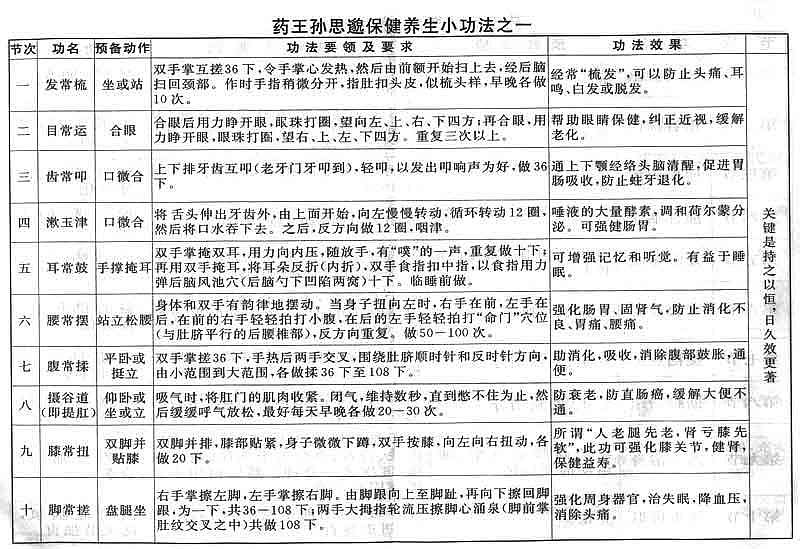 药王孙思邈保健养生小功法之一
节次 功名 预备动作 功法要领及要求 功法效果
一 发常梳 坐或站
双手掌互搓36下,令手掌心发热,然后由前额开始扫上去,经后脑
扫回颈部。作时手指稍微分开,指肚扣头皮,似梳头样,早晚各做
10次。
经常“梳发”,可以防止头痛、耳
鸣、白发或脱发。
二 目常运 合眼
合眼后用力睁开眼,眼珠打圈,望向左、上、右、下四方;再合眼,用
力睁开眼,眼珠打圈,望右、上、左、下四方。重复三次以上。
帮助眼睛保健,纠正近视,缓解
老化。
三 齿常叩 口微合
上下排牙齿互叩(老牙门牙叩到),轻叩,以发出叩响声为好,做36
下。
通上下颚经络头脑清醒,促进胃
肠吸收,防止蛀牙退化。
四 漱玉津 口微合
将舌头伸出牙齿外,由上面开始,向左慢慢转动,循环转动12圈,
然后将口水吞下去。之后,反方向做12圈,咽津。
唾液的大量酵素,调和荷尔蒙分
泌。可强健肠胃。
五 耳常鼓 手撑掩耳
双手掌掩双耳,用力向内压,随放手,有“噗”的一声,重复做十下;
再用双手掩耳,将耳朵反折(内折),双手食指扣中指,以食指用力
弹后脑风池穴(后脑勺下凹陷两窝)十下。临睡前做。
可增强记忆和听觉。有益于睡
眠。
六 腰常摆 站立松腰
身体和双手有韵律地摆动。当身子扭向左时,右手在前,左手在
后,在前的右手轻轻拍打小腹,在后的左手轻轻拍打“命门”穴位
(与肚脐平行的后腰椎部),反方向重复。做50-100次。
强化肠胃、固肾气,防止消化不
良、胃痛、腰痛。
七 腹常揉
平卧或
挺立
双手掌搓36下,手热后两手交叉,围绕肚脐顺时针和反时针方向,
由小范围到大范围,各做揉36下至108下。
助消化,吸收,消除腹部鼓胀,通
便。
八
摄谷道
(即提肛)
仰卧或
坐或立
吸气时,将肛门的肌肉收紧。闭气,维持数秒,直到憋不住为止,然
后缓缓呼气放松,最好每天早晚各做20-30次。
防衰老,防直肠癌,缓解大便不
通。
九 膝常扭
双脚并
贴膝
双脚并排,膝部贴紧,身子微微下蹲,双手按膝,向左向右扭动,各
做20下。
所谓“人老腿先老,肾亏膝先
软”,此功可强化膝关节,健肾,
保健益寿。
十 脚常搓 盘腿坐
右手掌擦左脚,左手掌擦右脚。由脚跟向上至脚趾,再向下擦回脚
跟,为一下,共36-108下;两手大拇指轮流压擦脚心涌泉(脚前掌
肚纹交叉之中)共做108下。
强化周身器官,治失眠,降血压,
消除头痛。
关键是持之以恒,日久效更著